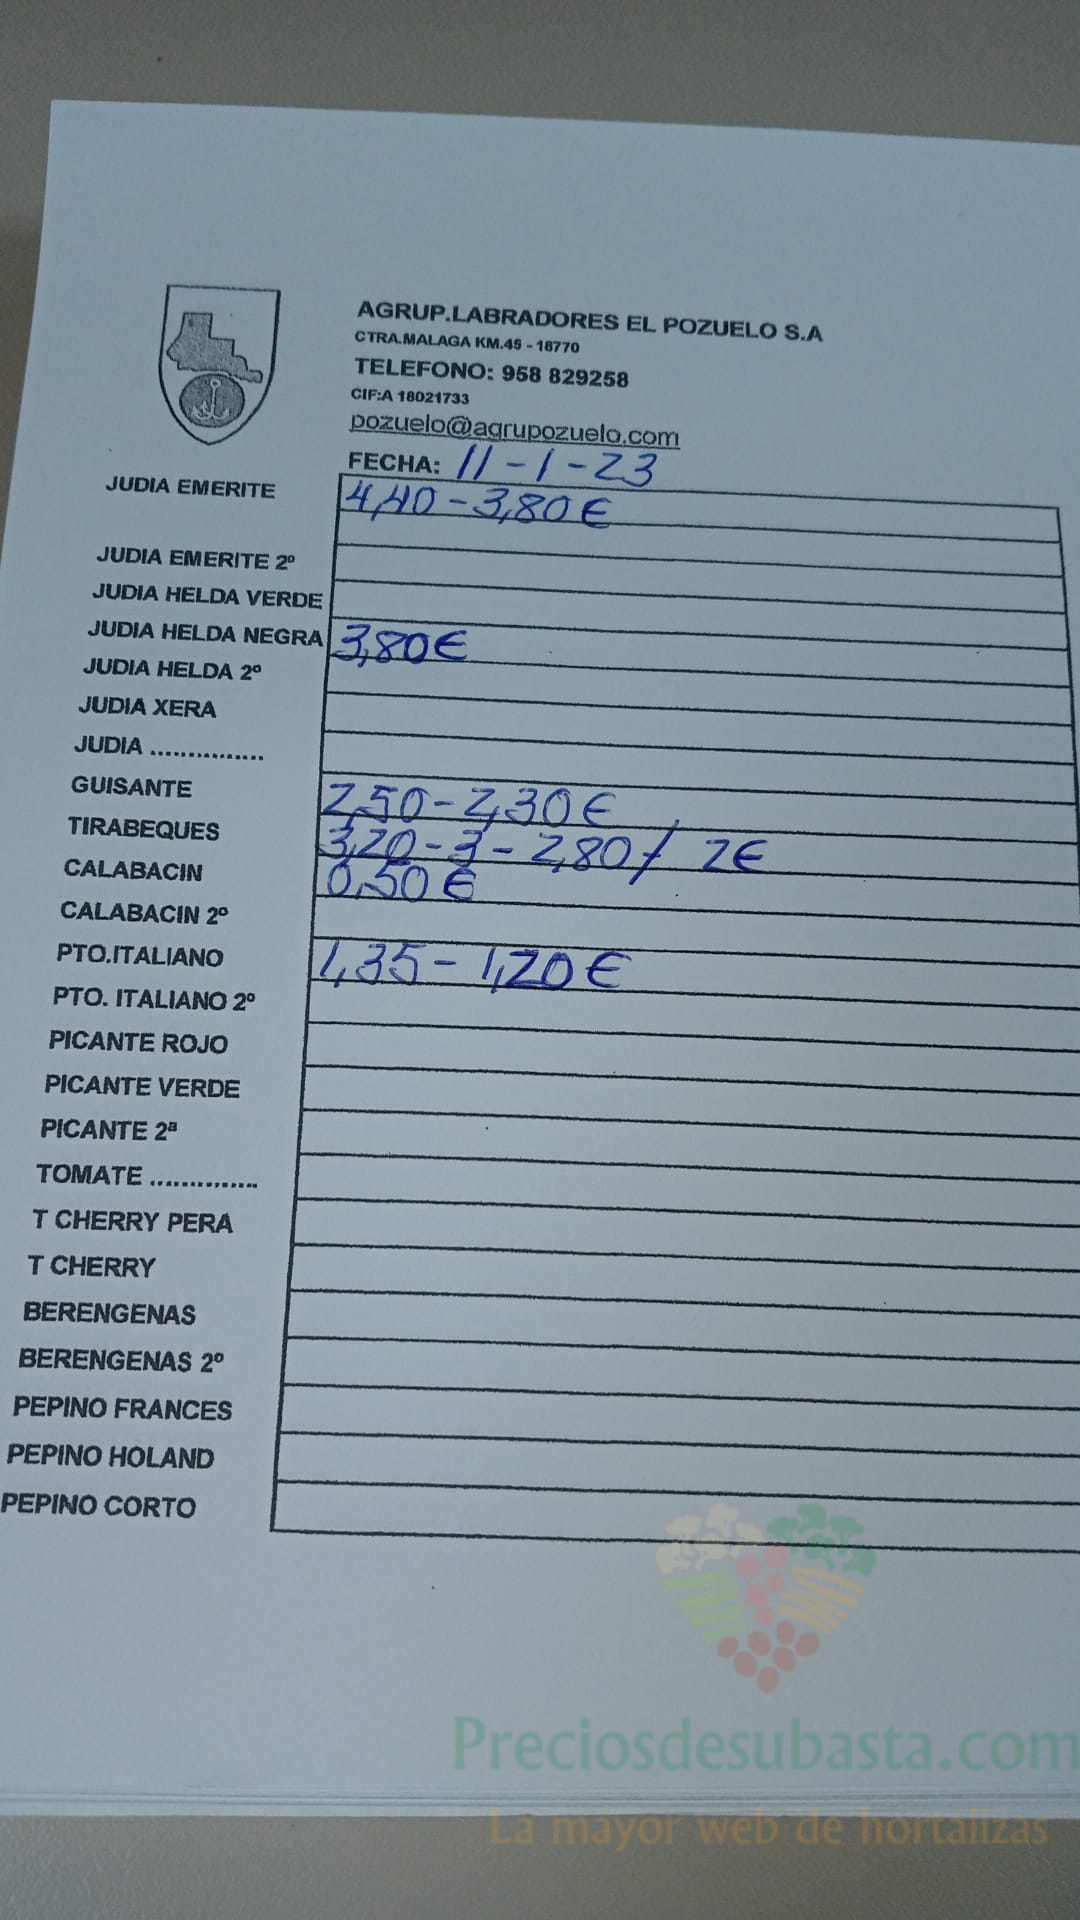 AGRUP.LABRADORES EL POZUELO S.A
CTRA.MALAGA KM.45 - 18770
TELEFONO: 958 829258
CIF:A 18021733
pozuelo@agrupozuelo.com
FECHA: 11-1-23
JUDIA EMERITE 4,40-3,80€
JUDIA EMERITE 2º
JUDIA HELDA VERDE
JUDIA HELDA NEGRA 3,80€
JUDIA HELDA 2º
JUDIA XERA
JUDIA ...............
GUISANTE 2,50-2,30€
TIRABEQUES 3,20-3-2,80/ 2€
CALABACIN 0,50€
CALABACIN 2º
PTO.ITALIANO 1,35-1,20€
PTO. ITALIANO 2º
PICANTE ROJO
PICANTE VERDE
PICANTE 2ª
TOMATE ..............
T CHERRY PERA
T CHERRY
BERENGENAS
BERENGENAS 2º
PEPINO FRANCES
PEPINO HOLAND
PEPINO CORTO
Preciosdesubasta.com
La mayor web de hortalizas